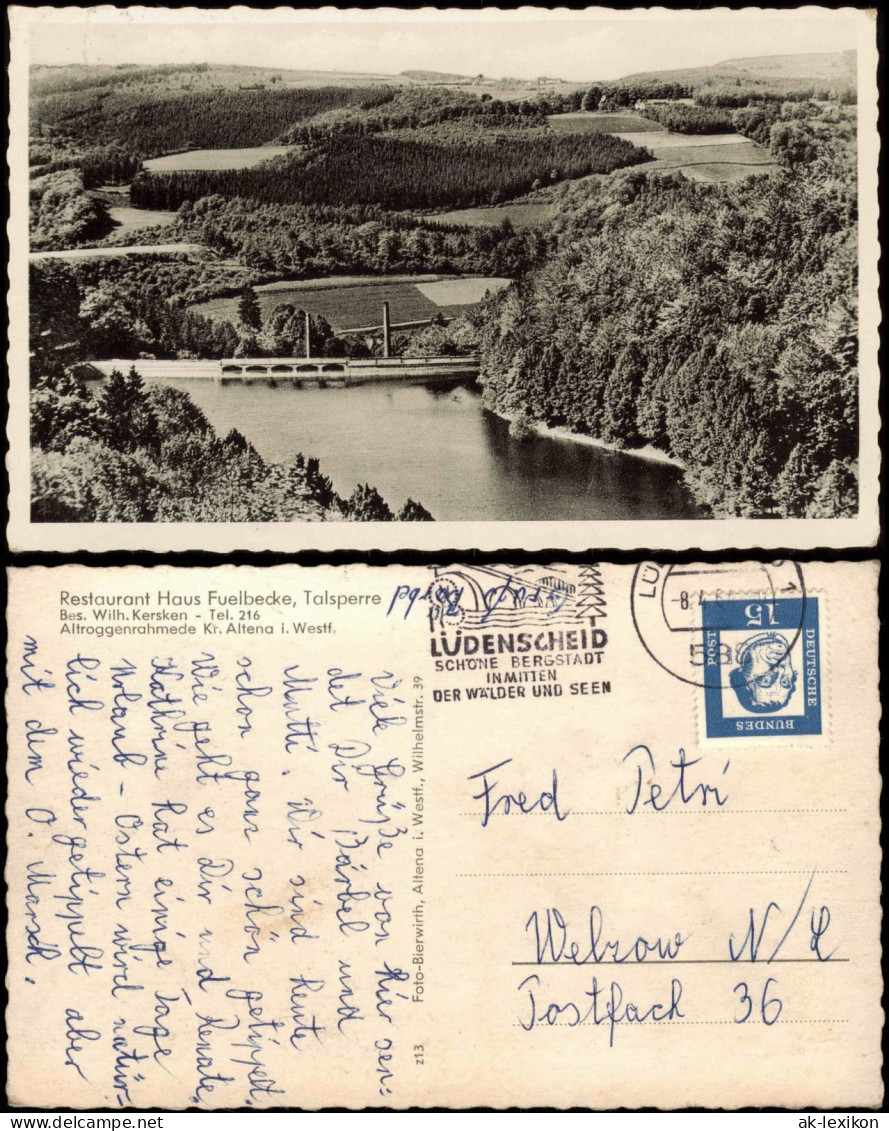 Restaurant Haus Fuelbecke, Talsperre
Bes. Wilh. Kersken - Tel. 216
Altroggenrahmede Kr. Altena i. Westf.
Viele Grüße von hier sen-
det Dir Bärbel und
Mutti. Wir sind heute
schon ganz schön getippelt.
Wie geht es Dir und Renate.
Kathrine hat einige Tage
Urlaub - Ostern wird natür-
lich wieder getippelt aber
mit dem O. Marsch.
Foto-Bierwirth, Altena i. Westf., Wilhelmstr. 39
z13
LÜDENSCHEID
SCHÖNE BERGSTADT
INMITTEN
DER WÄLDER UND SEEN
15
POST
DEUTSCHE
BUNDES
Fred Petri
Welzow N/L
Postfach 36
delcampe.net
ak-lexikon